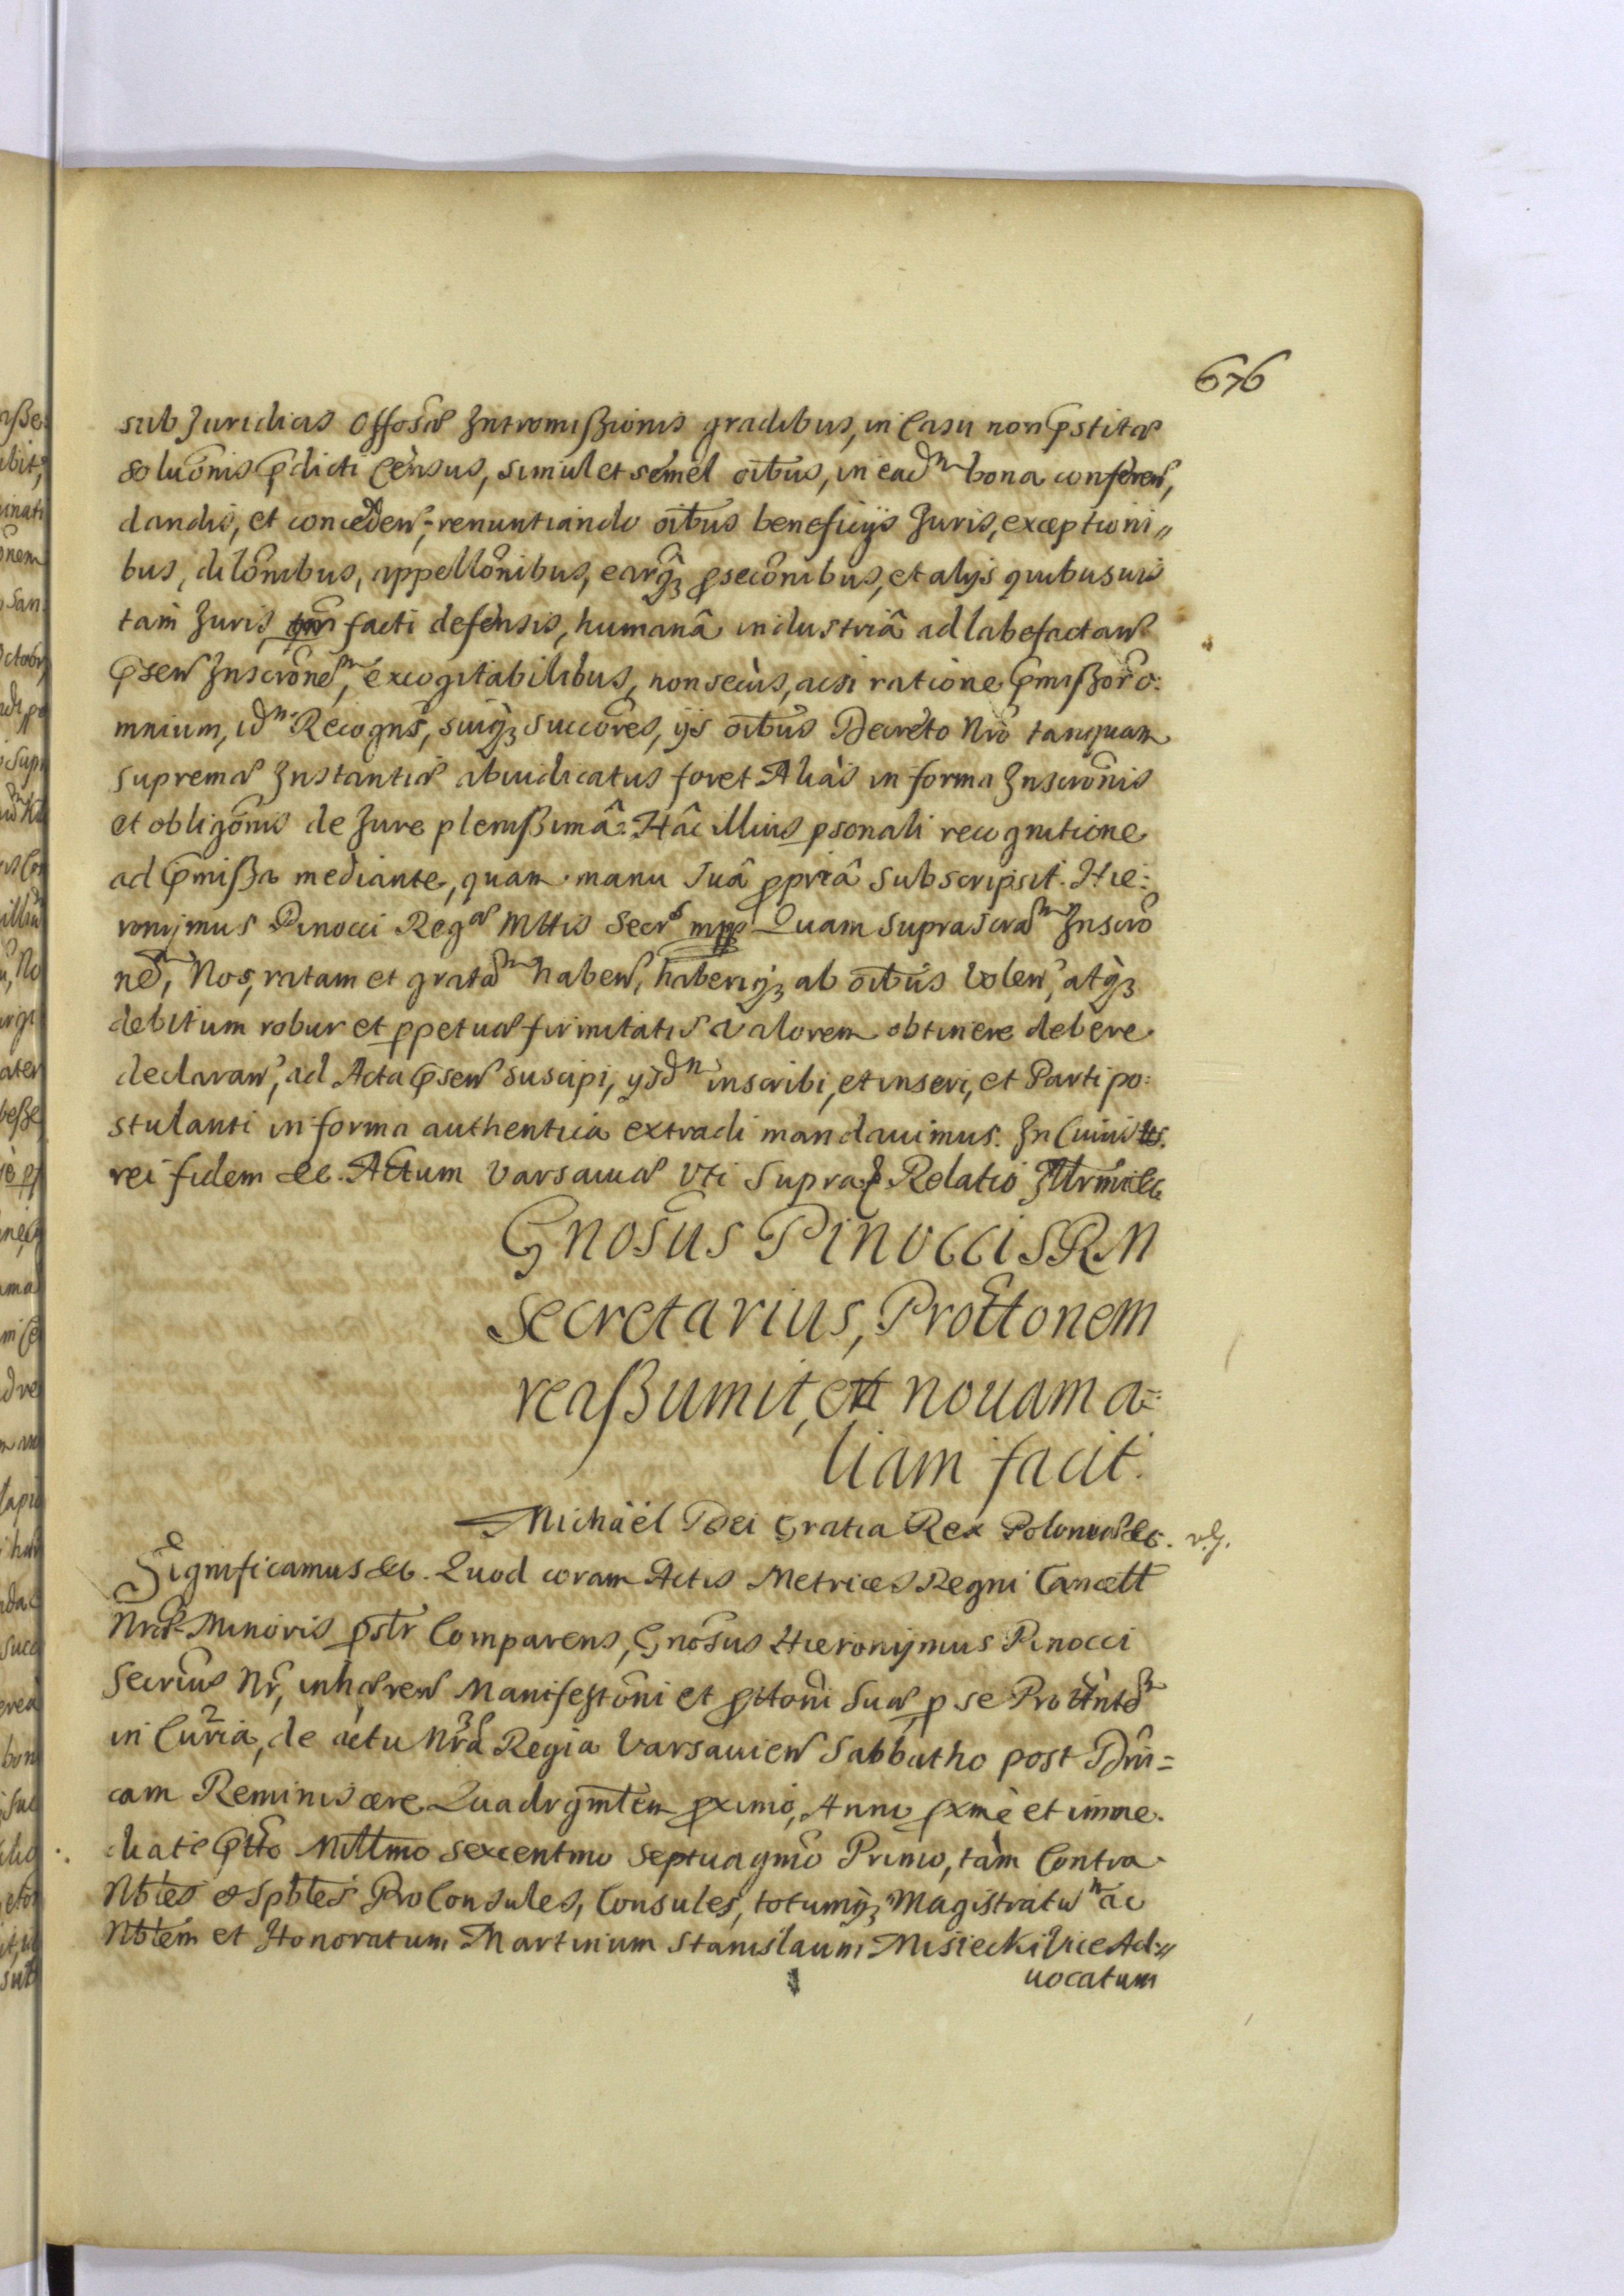 676
sub Juridicis Offosæ Intromißionis gradibus, in Casu non pstitæ
Soluõnis pdicti Censûs, simul et semel oĩbus, in eadm bona conferen,
dandis, et conceden, renuntiando oĩbus beneficijs Juris, exceptioni//
bus, dilõnibus, appellõnibus, earq₃ psecõnibus, et alijs quibusuis
tàm Juris, qm facti defensis, humanâ industriâ ad labefactan
psen Inscrõnem, excogitabilibus, non secùs, acsi ratione pmißor õ:
mnium, idm Recogns, suiq₃ succõres, ijs oĩbus Decreto Nrõ tanquam
supremæ Instantiæ abiudicatus foret Aliàs in forma Inscrõnis
et obligõnis de Jure plenißimâ: Hâc illius psonali recognitione
ad pmißa mediante, quam manu suâ ppriâ subscripsit. Hie:
ronijmus Pinocci Regæ Mttis Secrs mpp Quam suprascram Inscrõ
nem, Nos, ratam et gratam haben, haberiq₃ ab oĩbus volen, atq₃
debitum robur et ppetuæ firmitatis valorem obtinere debere
declaran, ad Acta psen suscipi, ijsdm inscribi, et inseri, et Parti po:
stulanti in forma authentica extradi mandauimus. In Cuius
rei fidem &c. Actum Varsauiæ Vti Supra Relatio
Gnosus Pinocci SRM
Secretarius, Prottonem
reaßumit, et nouam a=
liam facit.
Michäel Dei Gratia Rex Poloniæ &c.
Significamus &c. Quod coram Actis Metrices Regni Cancell
Nræ Minoris pstr Comparens, Gnosus Hieronijmus Pinocci
Secrius Nr, inhæren Manifestõni et pttoni Suæ, p se
in Curia, de actu Nra Regia Varsauien Sabbatho post Dni=
cam Reminiscere Quadrgmlem pximo, Anni pxmè et imme.
diatè ptto Millmo sexcentmo septuagmo Primo, tàm Contra
Nbles et Spbles ProConsules, Consules, totumq₃ Magistratum ac
Nblem et Honoratum Martinum Stanislaum Misiecki Vice Ad://
uocatum